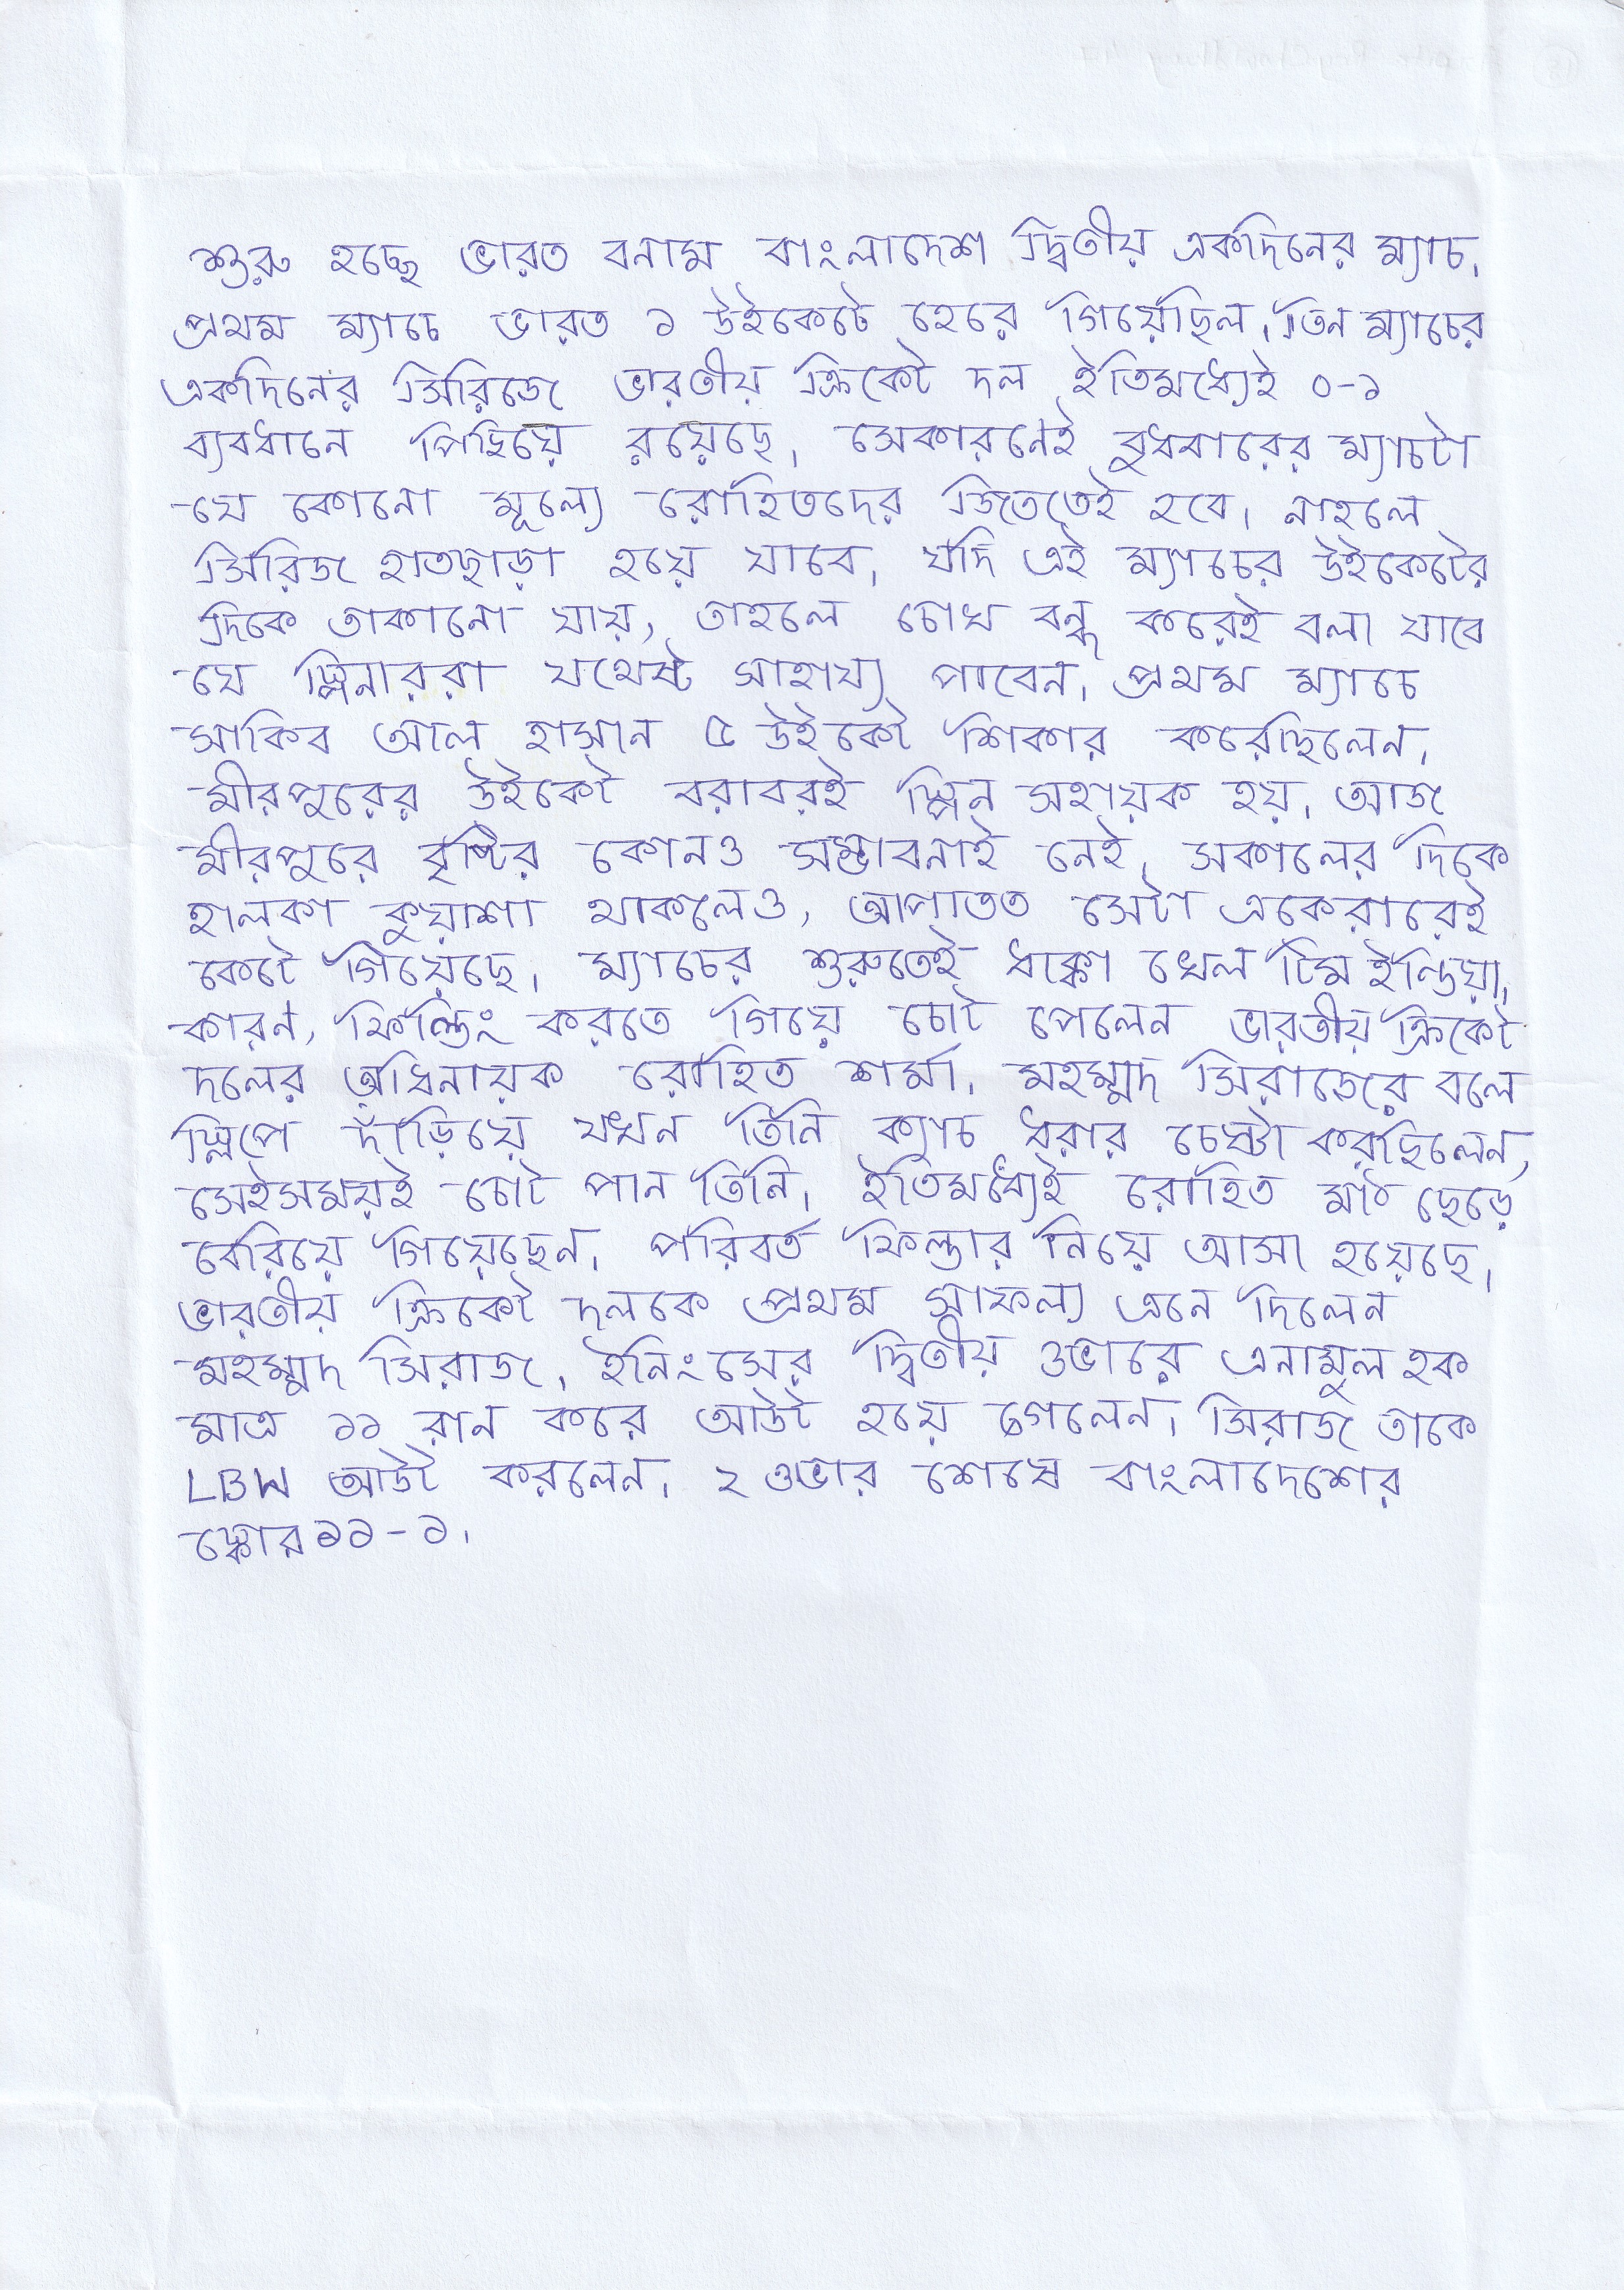 শুরু হচ্ছে ভারত বনাম বাংলাদেশ দ্বিতীয় একদিনের ম্যাচ।
প্রথম ম্যাচে ভারত ১ উইকেটে হেরে গিয়েছিল। তিন ম্যাচের
একদিনের সিরিজে ভারতীয় ক্রিকেট দল ইতিমধ্যেই ০-১
ব্যবধানে পিছিয়ে রয়েছে। সেকারনেই বুধবারের ম্যাচটা
যে কোনো মূল্যে রোহিতদের জিততেই হবে। নাহলে
সিরিজ হাতছাড়া হয়ে যাবে। যদি এই ম্যাচের উইকেটের
দিকে তাকানো যায়, তাহলে চোখ বন্ধ করেই বলা যাবে
যে স্পিনাররা যথেষ্ট সাহায্য পাবেন। প্রথম ম্যাচে
সাকিব আল হাসান ৫ উইকেট শিকার করেছিলেন।
মীরপুরের উইকেট বরাবরই স্পিন সহায়ক হয়। আজ
মীরপুরে বৃষ্টির কোনও সম্ভাবনাই নেই। সকালের দিকে
হালকা কুয়াশা থাকলেও, আপাতত সেটা একেবারেই
কেটে গিয়েছে। ম্যাচের শুরুতেই ধাক্কা খেল টিম ইন্ডিয়া।
কারন, ফিল্ডিং করতে গিয়ে চোট পেলেন ভারতীয় ক্রিকেট
দলের অধিনায়ক রোহিত শর্মা। মহম্মদ সিরাজের বলে
স্লিপে দাঁড়িয়ে যখন তিনি ক্যাচ ধরার চেষ্টা করছিলেন,
সেইসময়ই চোট পান তিনি। ইতিমধ্যেই রোহিত মাঠ ছেড়ে
বেরিয়ে গিয়েছেন। পরিবর্ত ফিল্ডার নিয়ে আসা হয়েছে।
ভারতীয় ক্রিকেট দলকে প্রথম সাফল্য এনে দিলেন
মহম্মদ সিরাজ। ইনিংসের দ্বিতীয় ওভারে এনামুল হক
মাত্র ১১ রান করে আউট হয়ে গেলেন। সিরাজ তাকে
LBW আউট করলেন। ২ ওভার শেষে বাংলাদেশের
স্কোর ১১-১।